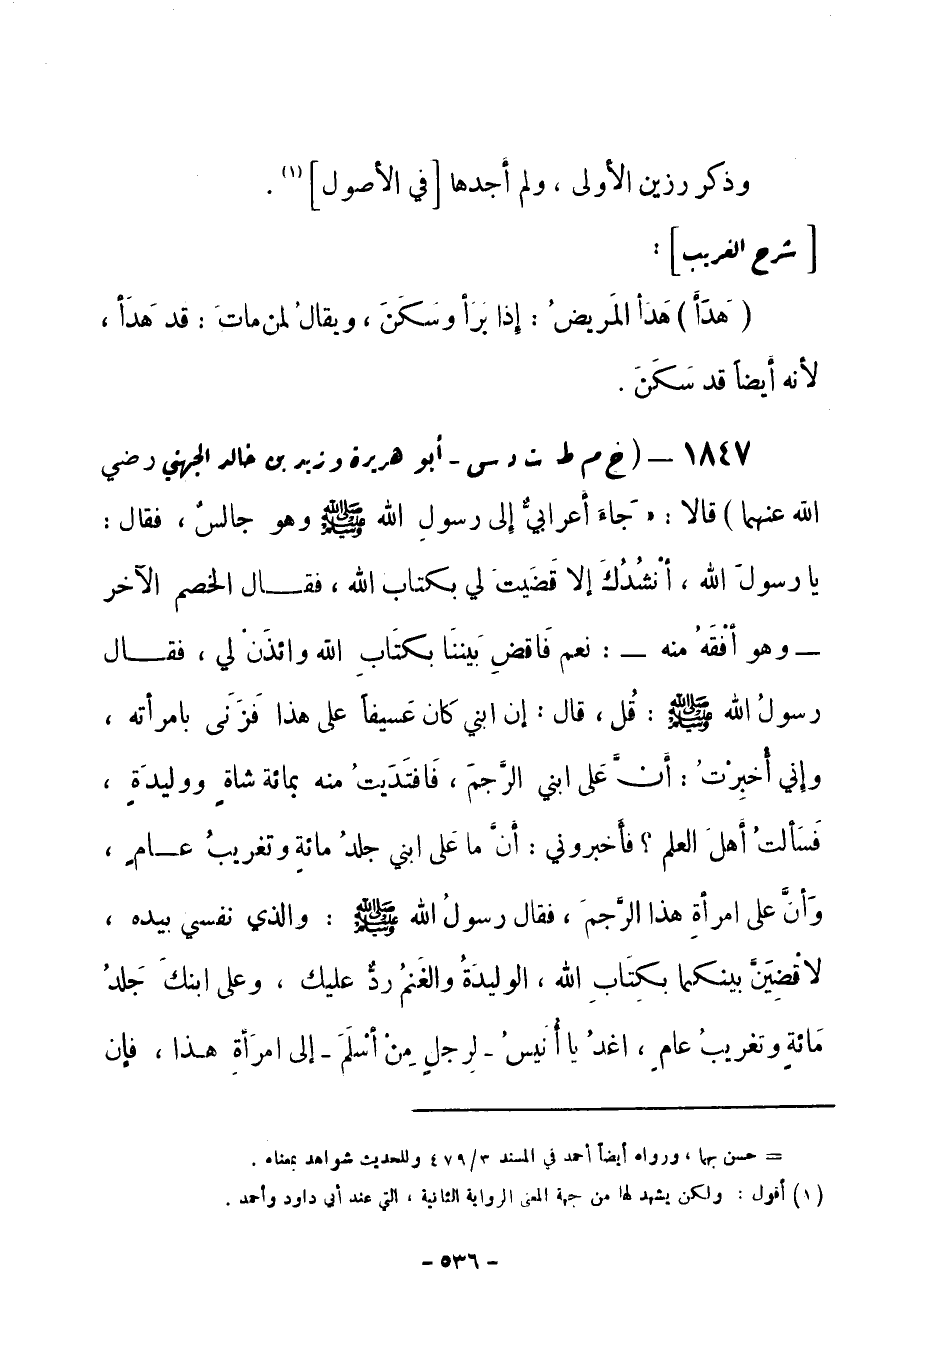 وذكر رزين الأولى ، ولم أجدها [في الأصول](١) .
[ شرح الغريب] :
( هَدَأَ ) هَدَأَ المَريضُ : إذا بَرَأَ وسَكَنَ ، ويقالُ لمن ماتَ : قد هَدَأَ ،
لأنه أيضاً قد سَكَنَ .
١٨٤٧ – ( خ م ط ت د س - أبو هريرة وزيد بن خالد الجهني رضي
الله عنهما ) قالا : « جاءَ أعرابيٌّ إلى رسولِ الله ﷺ وهو جالسٌ ، فقال :
يا رسولَ الله ، أنْشُدُكَ إلا قَضَيتَ لي بكتاب الله ، فقـــال الخصم الآخر
ـ وهو أفْقَهُ منه ـ : نعم فَاقضِ بَيننَا بكتَابِ الله وائذَنْ لي ، فقـــال
رسولُ الله ﷺ : قُل ، قال : إن ابني كان عَسيفاً على هذا فَزَنَى بامرأته ،
وإني أُخبِرْتُ : أنَّ عَلَى ابني الرَّجمَ ، فَافتَدَيتُ منه بمائة شاةٍ ووليدَةٍ ،
فَسَألتُ أهلَ العلم ؟ فأَخبروني : أنَّ ما عَلى ابني جلدُ مائةٍ وتغريبُ عـــامٍ ،
وَأنَّ على امرأةِ هذا الرَّجمَ ، فقال رسولُ الله ﷺ : والذي نفسي بيده ،
لأقْضِيَنَّ بينكما بكِتَابِ الله ، الوليدَةُ والغَنمُ ردٌّ عليك ، وعلى ابنكَ جَلدُ
مَائةٍ وتغريبُ عامٍ ، اغدُ يا أُنَيسُ ـ لرجلٍ مِنْ أسْلَمَ ـ إلى امرَأةِ هـذا ، فإن
= حسن بها ، ورواه أيضاً أحمد في المسند ٤٧٩/٣ وللحديث شواهد بمعناه .
(١) أقول : ولكن يشهد لها من جهة المعنى الرواية الثانية ، التي عند أبي داود وأحمد .
- ٥٣٦ -